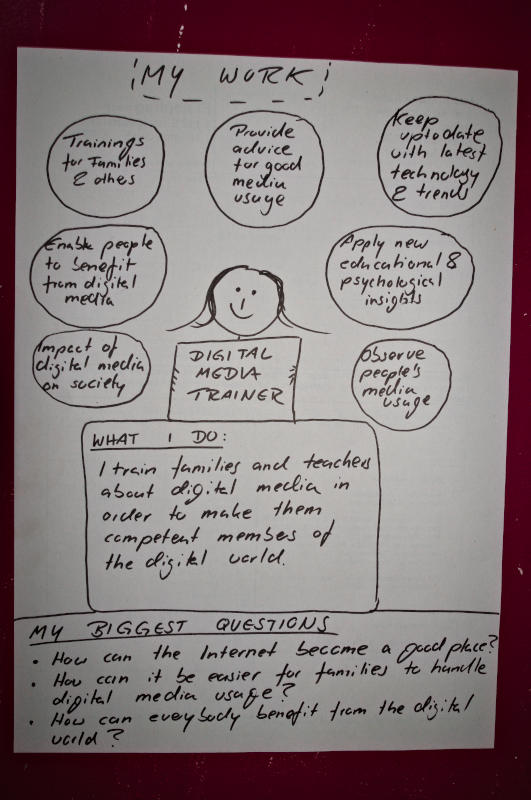 MY WORK
Trainings
for Families
& others
Provide
advice
for good
media
usage
Keep
up to date
with latest
technology
& trends
Enable people
to benefit
from digital
media
Apply new
educational &
psychological
insights
Impact of
digital media
on society
DIGITAL
MEDIA
TRAINER
Observe
people's
media
usage
WHAT I DO:
I train families and teachers
about digital media in
order to make them
competent members of
the digital world.
MY BIGGEST QUESTIONS
• How can the Internet become a good place?
• How can it be easier for families to handle
digital media usage?
• How can everybody benefit from the digital
world?